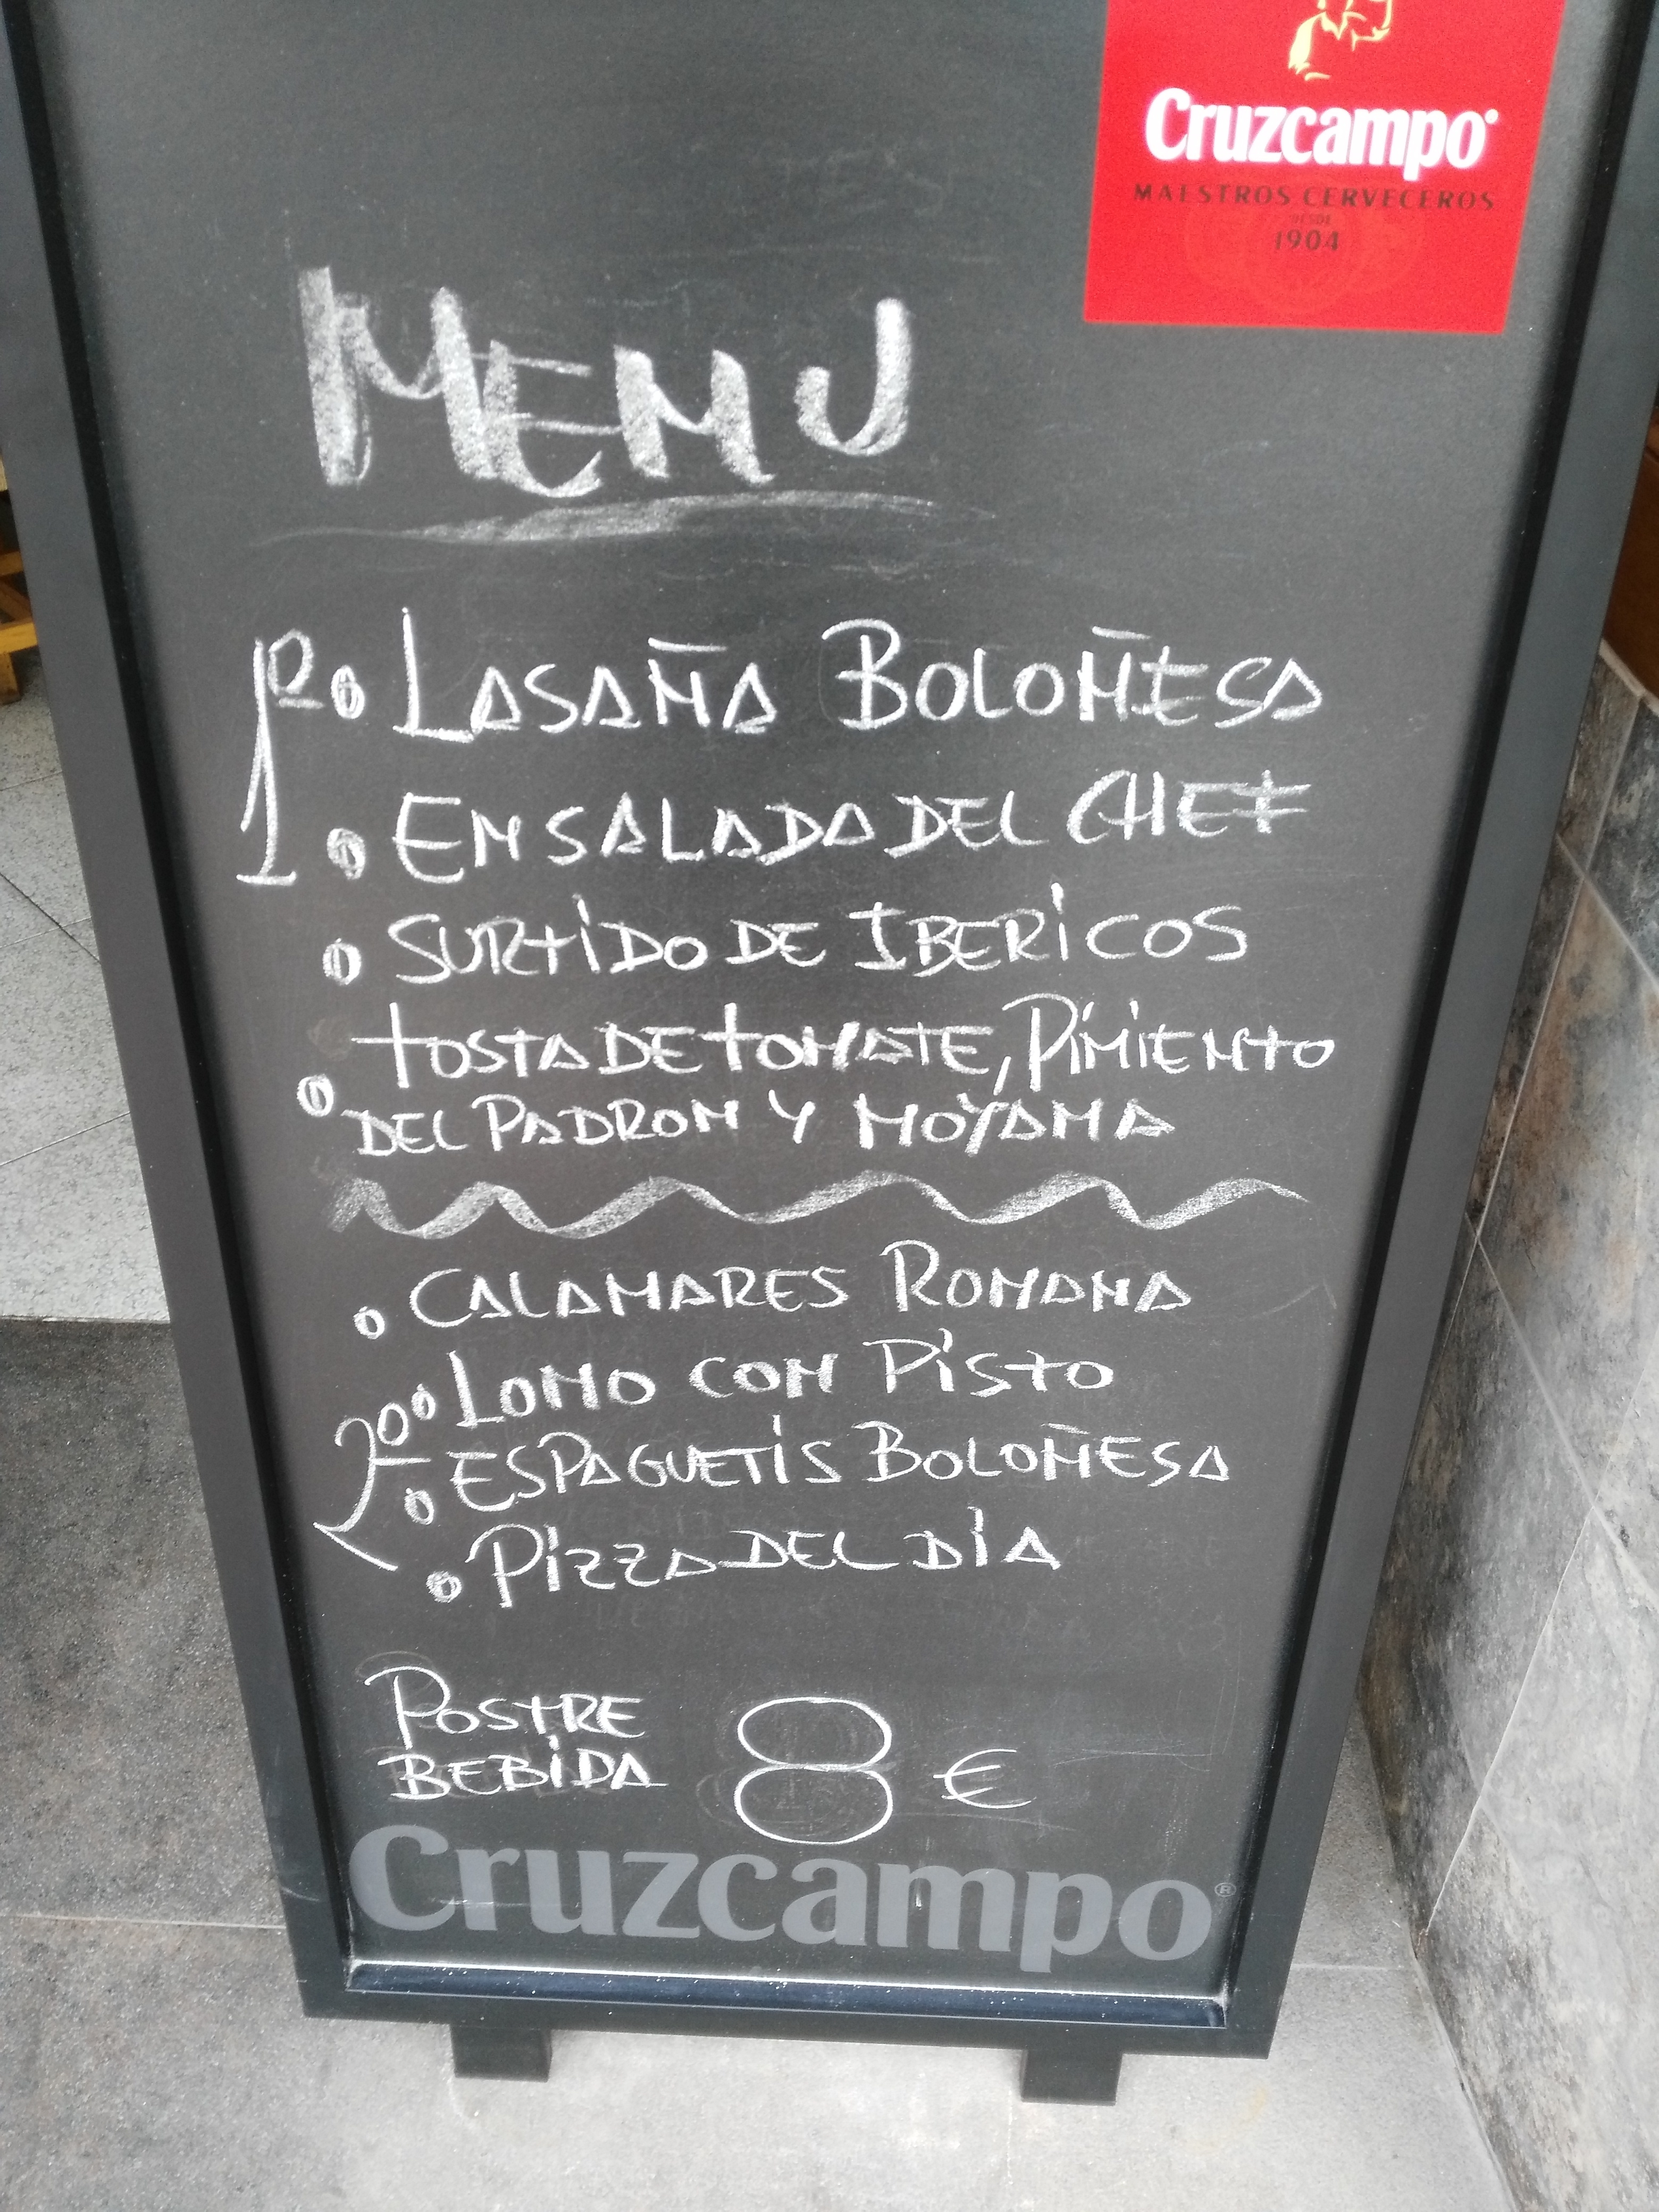 Cruzcampo
MAESTROS CERVECEROS
DESDE
1904
MENU
1º
LASAÑA BOLOÑESA
ENSALADA DEL CHEF
SURTIDO DE IBERICOS
TOSTA DE TOMATE, PIMIENTO
DEL PADRON Y MOYAMA
2º
CALAMARES ROMANA
LOMO CON PISTO
ESPAGUETIS BOLOÑESA
PIZZA DEL DÍA
POSTRE
BEBIDA 8 €
Cruzcampo®